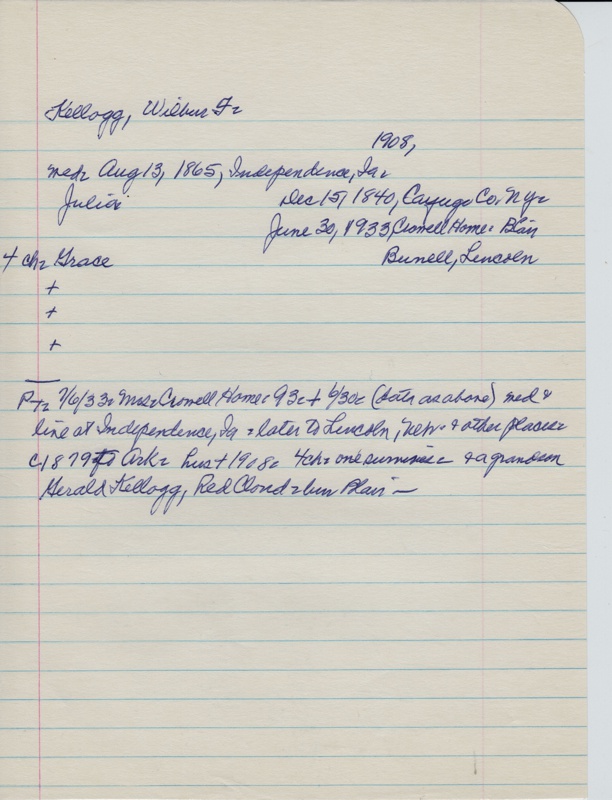 Kellogg, Wilbur F.
1908,
med. Aug 13, 1865, Independence, Ia.
Julia Dec 15, 1840, Cayuga Co. Ny.
June 30, 1933, Crowell Home. Blair
4 ch. Grace Burell, Lincoln
+
+
+
Pt. 7/6/33. Mrs. Crowell Home. 93. + 6/30. (data as above) med &
line at Independence, Ia. later to Lincoln, Nebr. & other places.
C1879 to Ark. hus + 1908. 4 ch. one & a grandson
Gerald Kellogg, Red Cloud. bur Blair —